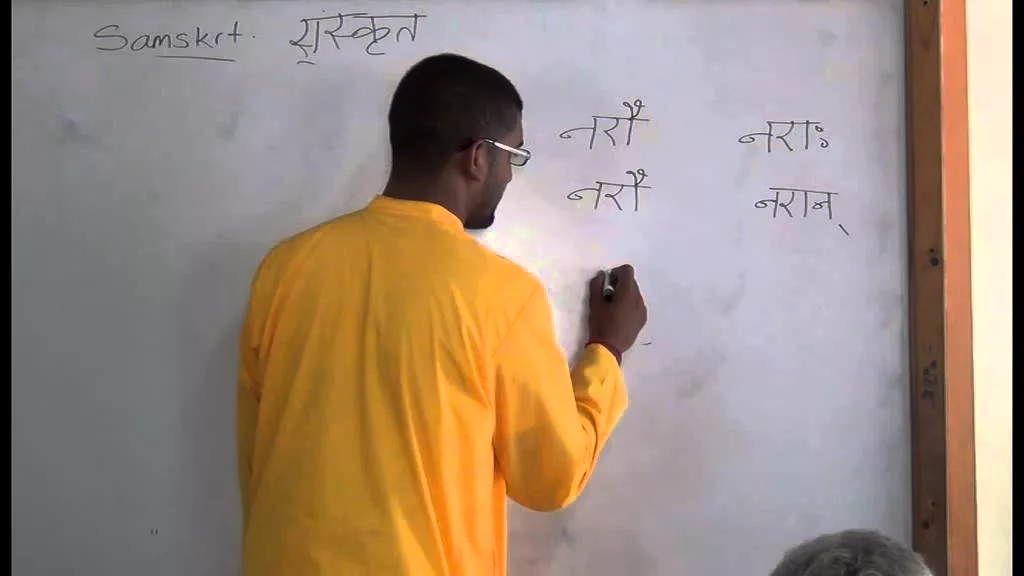 Samskrt. संस्कृत
नरौ नराः
नरौ नरान्